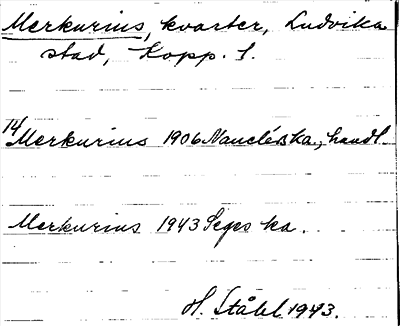 Merkurius, kvarter, Ludvika
stad, Kopp. l.
14 Merkurius 1906 ka., handl.
Merkurius 1943 ka.
H. Ståhl 1943.